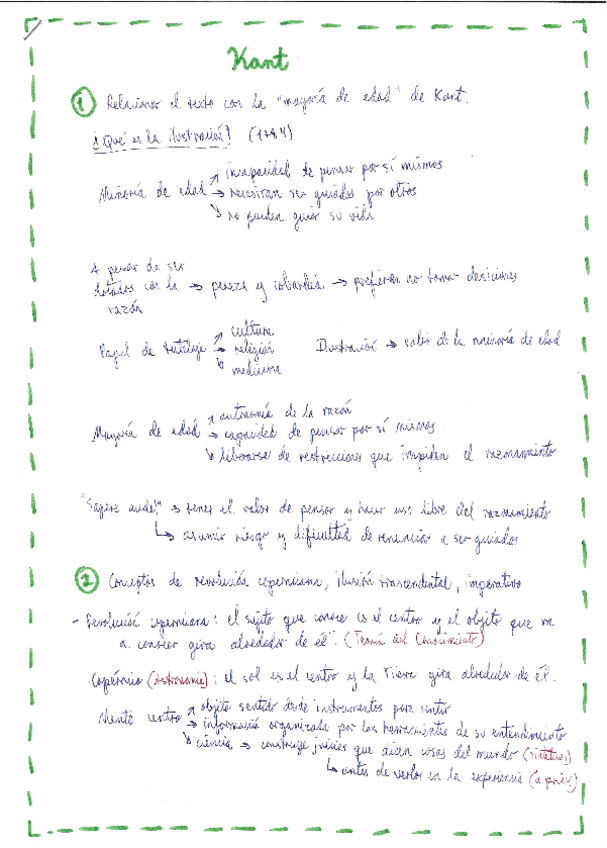 Kant
① Relacionar el texto con la "mayoría de edad" de Kant.
¿Qué es la ilustración? (1784)
↗ incapacidad de pensar por sí mismos
Minoría de edad → necesitan ser guiados por otros
↘ no pueden guiar su vida
A pesar de ser
dotados con la → pereza y cobardía → prefieren no tomar desiciones
razón
↗ cultura
Papel de tutelaje → religión Ilustración → salir de la minoría de edad
↘ medicina
↗ autonomía de la razón
Mayoría de edad → capacidad de pensar por sí mismos
↘ liberarse de restricciones que impiden el razonamiento
"Sapere aude!" → tener el valor de pensar y hacer uso libre del razonamiento
↳ asumir riesgo y dificultad de renunciar a ser guiados
② Conceptos de revolución coperniciana, ilusión trascendental, imperativo
- Revolución coperniciana: el sujeto que conoce es el centro y el objeto que va
a conocer gira alrededor de él. (Teoría del Conocimiento)
Copérnico (astronomía): el sol es el centro y la Tierra gira alrededor de él.
↗ objeto sentido desde instrumentos para sentir
Mente centro → información organizada por las herramientas de su entendimiento
↘ ciencia → construye juicios que dicen cosas del mundo (sintéticos)
↳ antes de verlos en la experiencia (a priori)